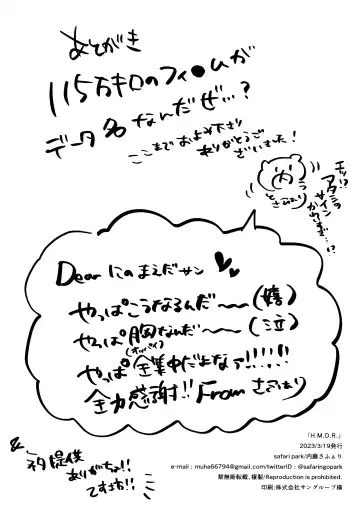 あとがき
115万キロのフィ●ムが
データ名なんだぜ…?
ここまでお読み下さり
ありがとうござい
ました!
Dear にのまえださん
やっぱこうなるんだ〜〜(嬉)
やっぱ胸なんだ〜〜(泣)
(オッパイ)
やっぱ全集中だよなァ!!!!
全力感謝!! From さふぁり
& ネタ提供
ありがちょ!!
「H.M.D.R.」
2023/3/19発行
safari park/内藤さふぁり
e-mail : muha66794@gmail.com/twitterID : @safaringopark
禁無断転載, 複製/Reproduction is prohibited.
印刷:株式会社サングループ様